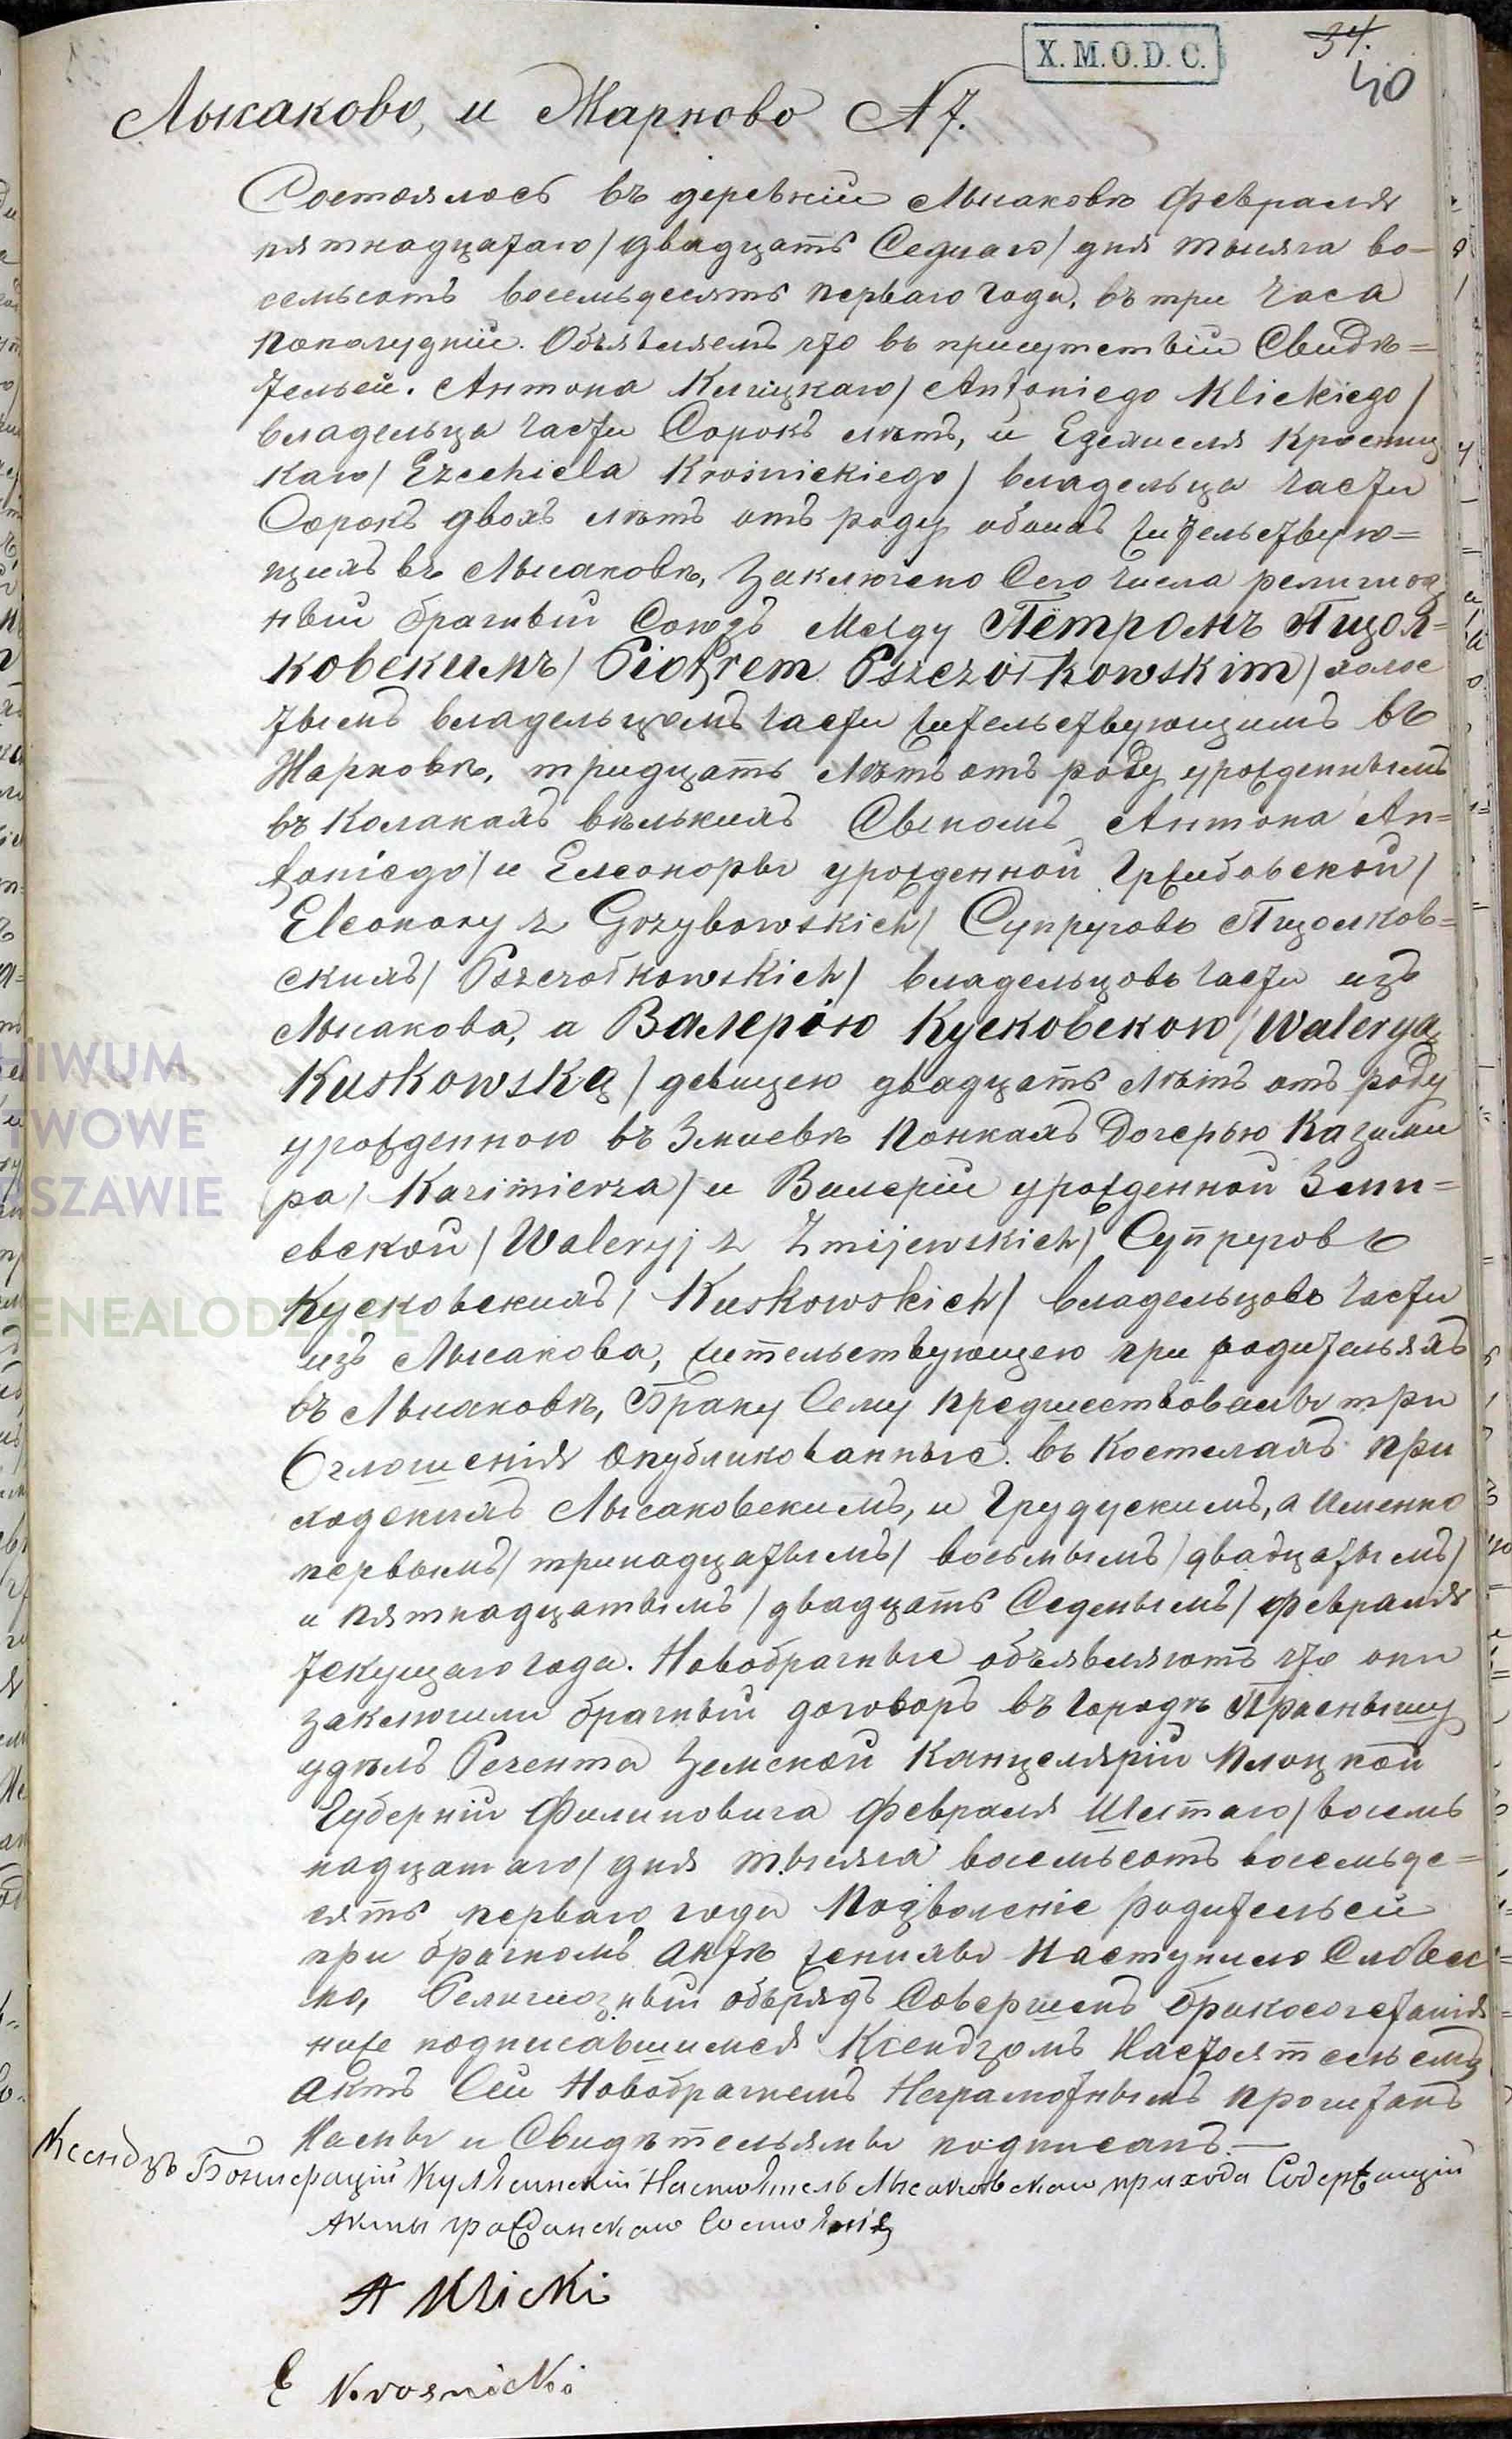 X. M. O. D. C.
34.
40
Лысаково, и Жарново № 7.
Состоялось въ деревніи Лысаковѣ Февраля
пятнадцатаго / двадцать Седмаго / дня тысяча во-
семьсотъ восемьдесятъ перваго года, въ три часа
пополудніи. Объявляемъ что въ присутствіи Свидѣ=
тельей. Антона Клицкаго / Antoniego Klickiego /
владельца части Сорокъ лѣтъ, и Езехіеля Кросниц
каго / Ezechiela Krośnickiego / владельца части
Сорокъ двохъ лѣтъ отъ роду обоихъ жительствую=
щихъ въ Лысаковѣ, Заключено Сего числа религіоз
ный брачный Союзъ Между Пётромъ Пщол=
ковскимъ / Piotrem Pszczołkowskim / холос
тымъ владельцомъ части жительствующимъ въ
Жарновѣ, тридцать лѣтъ отъ роду урожденнымъ
въ Колакахъ вѣлькихъ Сыномъ Антона An=
toniego / и Елеоноры урожденной Гржибовской /
Eleonory z Grzybowskich / Супруговъ Пщолков=
скихъ / Pszczołkowskich / владельцовъ части изъ
Лысакова, а Валерію Кусковскою / Waleryą
Kuskowską / девицею двадцать лѣтъ отъ роду
урожденною въ Змиевѣ Понкахъ Дочерью Казими
ра / Kazimierza / и Валеріи урожденной Зми=
евской / Waleryj z Żmijewskich / Супруговъ
Кусковскихъ / Kuskowskich / владельцовъ части
изъ Лысакова, жительствующею при родительяхъ
въ Лысаковѣ, Браку Сему предшествовалы три
Оглошенія опубликованные въ Костелахъ при
ходскихъ Лысаковскимъ, и Грудускимъ, а Именно
первымъ / тринадцатымъ / восьмымъ / двадцатымъ /
и пятнадцатымъ / двадцать Седемымъ / Февраля
текущаго года. Новобрачные объявляютъ что они
заключили брачный договоръ въ Городѣ Праснышу
удѣлъ Регента Земской Канцеляріи Плоцкой
Губерніи Филиповича Февраля Шестаго / восемь
надцатаго / дня тысяча восемьсотъ восемьде=
сятъ перваго года Позволеніе родительей
при брачномъ актѣ женихы Наступило Словес
но, Религіозный обырядъ Совершенъ бракосочетанія
ниже подписавшимся Ксендзомъ Настоятельемъ
Актъ Сей Новобрачнемъ Неграмотнымъ прочитанъ
Намы и Свидѣтельямы подписанъ.—
Ксендзъ Бонифацій Настоятель Лысаковскаго прихода Содержащій
Акты гражданскаго Состоянія
A Klicki
E Krosnicki
ARCHIWUM
PAŃSTWOWE
W WARSZAWIE
GENEALODZY.PL